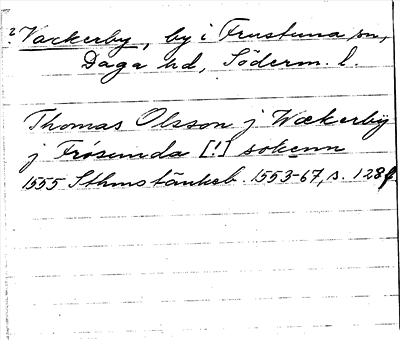 ? Vackerby, by i Frustuna sn,
Daga hd, Söderm. l.
Thomas Olsson j Wackerby
j Frösunda [!] sokenn
1555 Sthmstänkeb. 1553-67, s. 128